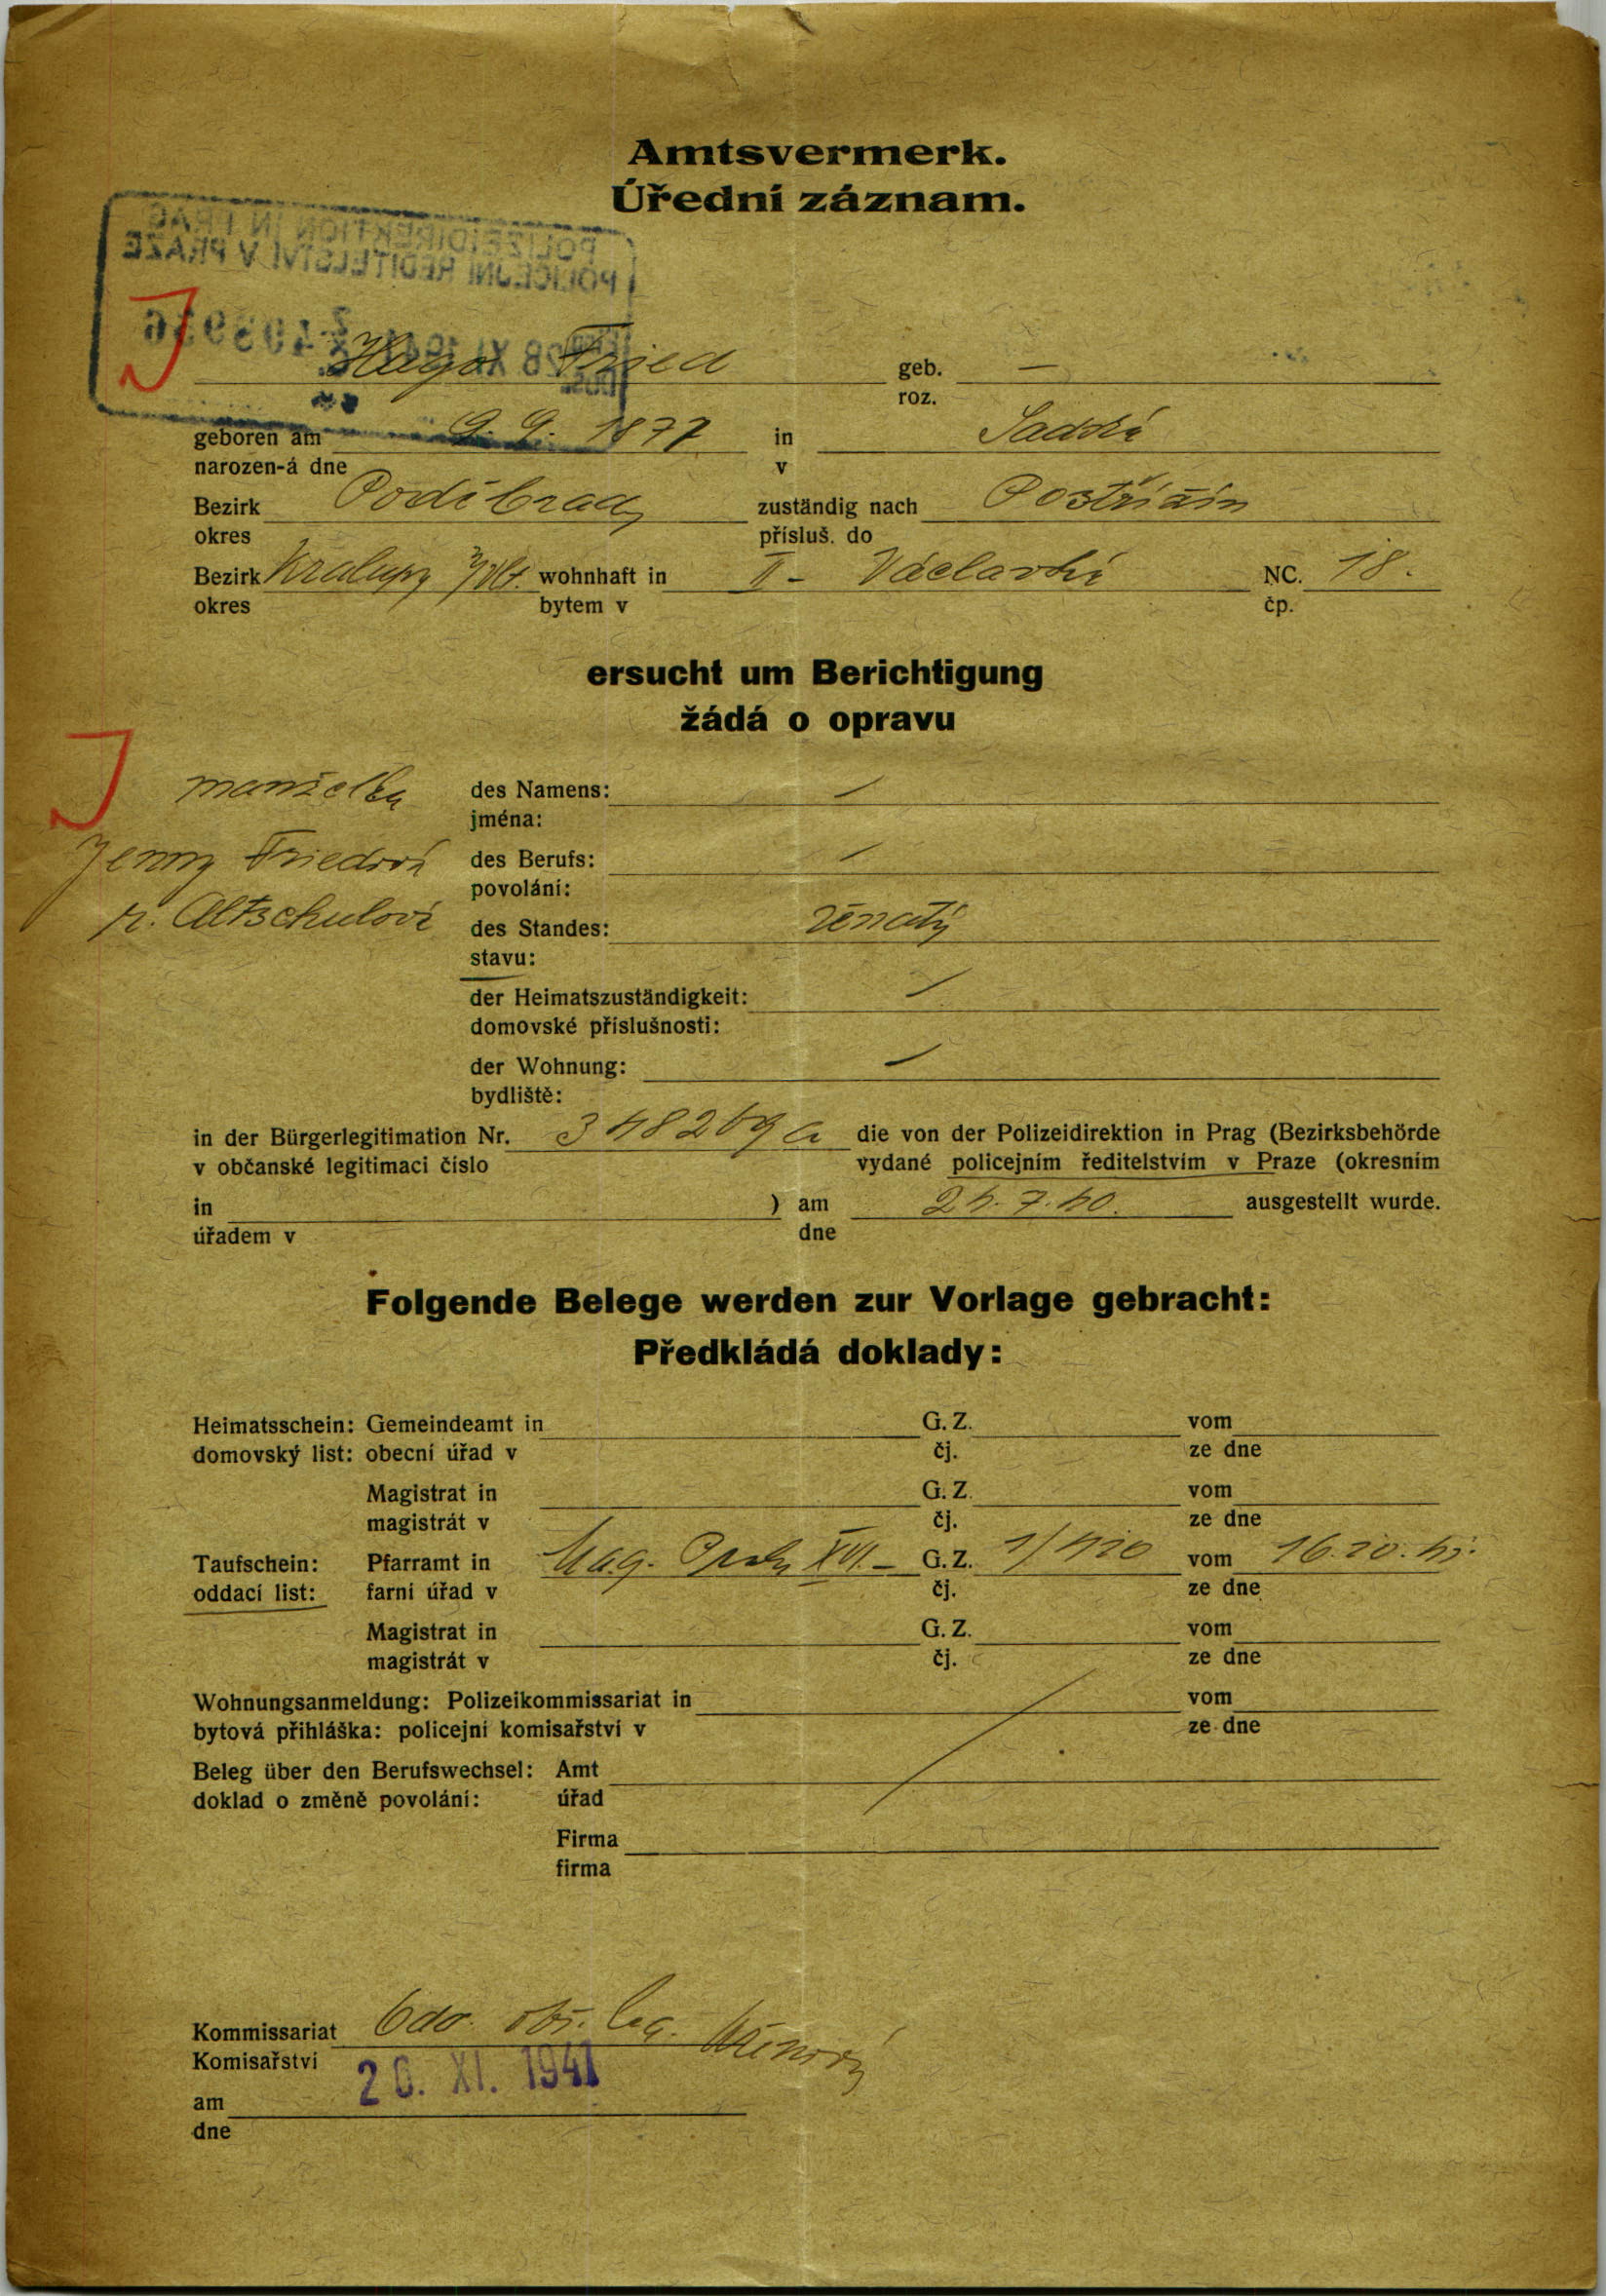 Amtsvermerk.
Úřední záznam.
POLIZEIDIREKTION IN PRAG
POLICEJNI ŘEDITELSTVI V PRAZE
28 XI 1941
J
Hugo Fried geb. —
roz.
geboren am 9. 9. 1877 in Sadská
narozen-á dne v
Bezirk Poděbrady zuständig nach Postřižín
okres přísluš. do
Bezirk Kralupy n/Vlt. wohnhaft in II - Václavská NC. 18.
okres bytem v čp.
ersucht um Berichtigung
žádá o opravu
J
manželka des Namens:
jména:
Jenny Friedová des Berufs:
povolání:
r. Altschulová des Standes: ženatý
stavu:
der Heimatszuständigkeit:
domovské příslušnosti:
der Wohnung:
bydliště:
in der Bürgerlegitimation Nr. 348269 die von der Polizeidirektion in Prag (Bezirksbehörde
v občanské legitimaci číslo vydané policejním ředitelstvím v Praze (okresním
in ) am 24. 7. 40. ausgestellt wurde.
úřadem v dne
Folgende Belege werden zur Vorlage gebracht:
Předkládá doklady:
Heimatsschein: Gemeindeamt in G. Z. vom
domovský list: obecní úřad v čj. ze dne
Magistrat in G. Z. vom
magistrát v čj. ze dne
Taufschein: Pfarramt in Mag. Prahy XVI. - G. Z. 1/420 vom 16. 10. 41.
oddací list: farní úřad v čj. ze dne
Magistrat in G. Z. vom
magistrát v čj. ze dne
Wohnungsanmeldung: Polizeikommissariat in vom
bytová přihláška: policejní komisařství v ze dne
Beleg über den Berufswechsel: Amt
doklad o změně povolání: úřad
Firma
firma
Kommissariat Odd. obč. leg.
Komisařství
20. XI. 1941
am
dne